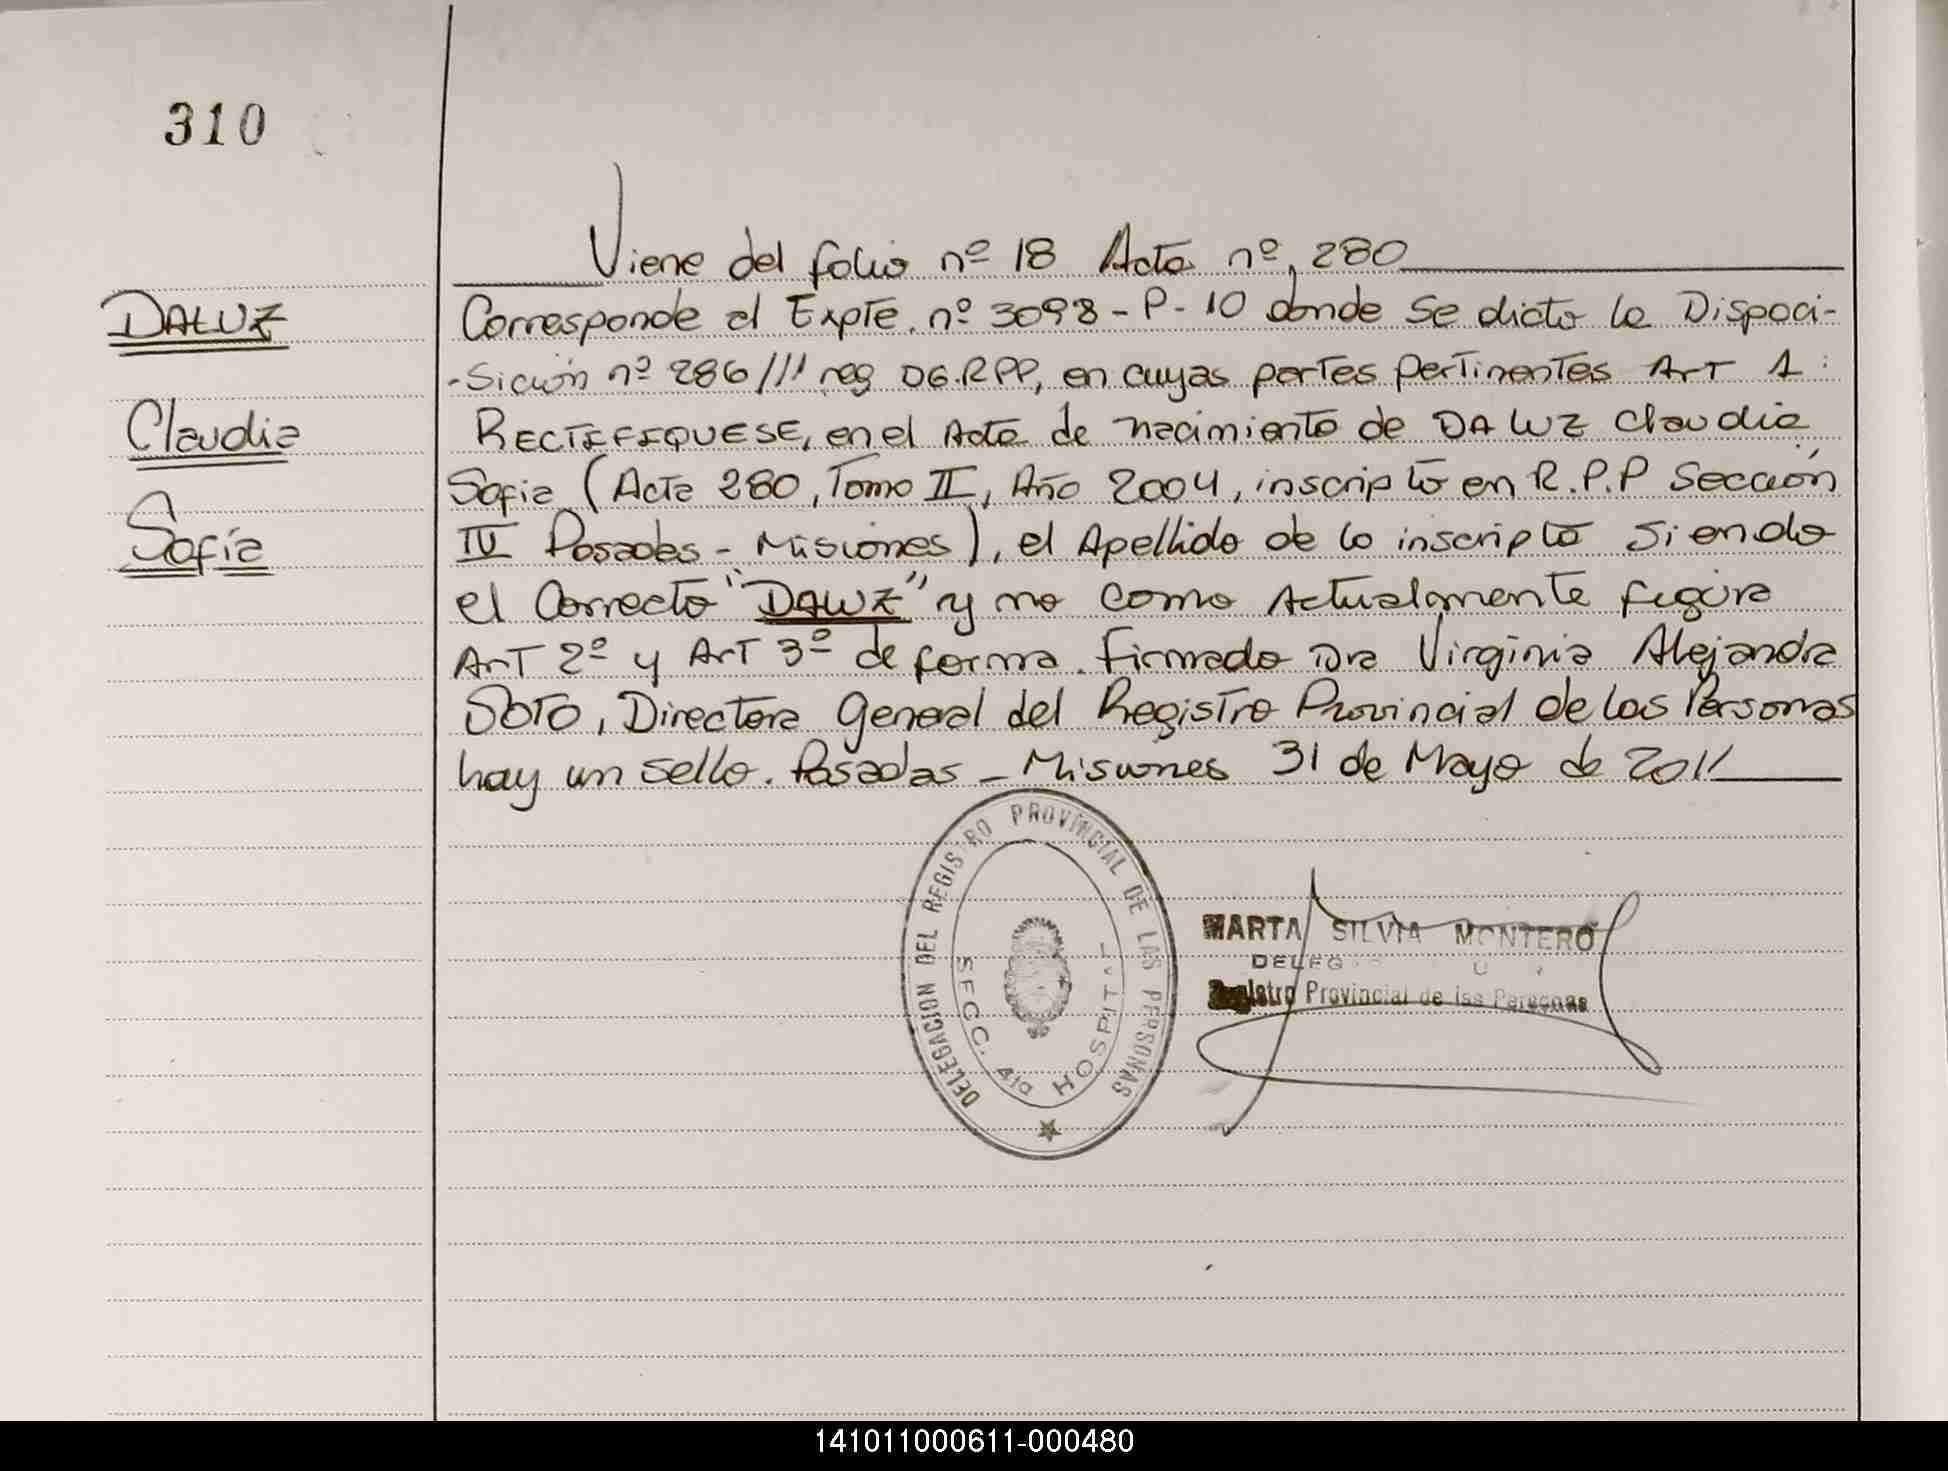 310
Viene del folio nº 18 Acta nº, 280
DALUZ
Corresponde al Expte. nº 3098-P-10 donde se dicto la Dispoci-
-Sición nº 286/11 reg DG.RPP, en cuyas partes pertinentes Art 1:
Claudia
RECTIFIQUESE, en el Acta de nacimiento de DA LUZ Claudia
Sofia (Acta 280, Tomo II, Año 2004, inscripto en R.P.P Sección
Sofía
IV Posadas - Misiones), el Apellido de lo inscripto siendo
el Correcto "DALUZ" y no como Actualmente figura
Art 2º y Art 3º de forma. Firmado Dra Virginia Alejandra
SOTO, Directora General del Registro Provincial de las Personas
hay un sello. Posadas - Misiones 31 de Mayo de 2011
DELEGACION DEL REGISTRO PROVINCIAL DE LAS PERSONAS
SECC. 4ta HOSPITAL
MARTA SILVIA MONTERO
Registro Provincial de las Personas
141011000611-000480